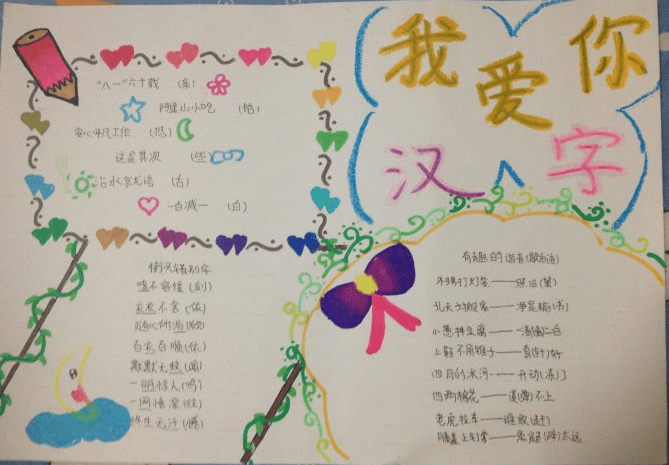 我爱你
汉字
"八一"六十载 (亲)
阿里山小吃 (怕)
安心平凡工作 (恐)
这是其次 (些)
活水无尤语 (舌)
一百减一 (白)
街头错别字
嗑不容缓 (刻)
衣衣不舍 (依)
随心所浴 (欲)
百衣百顺 (依)
默默无蚊 (闻)
一明惊人 (鸣)
一网情深 (往)
有趣的谐音(歇后语)
外甥打灯笼——照旧(舅)
孔夫子搬家——净是输(书)
小葱拌豆腐——一清二白
上鞋不用锥子——真(针)好
四月的冰河——开动(冻)了
四两棉花——(弹)不上
老虎拉车——谁敢(赶)
膝盖上钉掌——离(蹄)太远